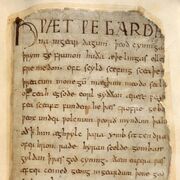 HǷÆT ǷE GARDE
na ingear dagum þeod cyninga
þrym ge frunon huða æþelingas elle
fremedon. oft scyld scefing sceaþe
þreatum monegū mægþum meodo setla
of teah egsode eorl syððan ærest
fea sceaft funden he þæs frofre geba
ƿeox under ƿolcnum ƿeorð myndum þah
him æghƿylc þara ymb sittendra
ofer hron rade hyran scolde gomban
gyldan ꝥ ƿæs god cyning. ðæm eafera ƿæs
æfter cenned geong ingeardum þone god